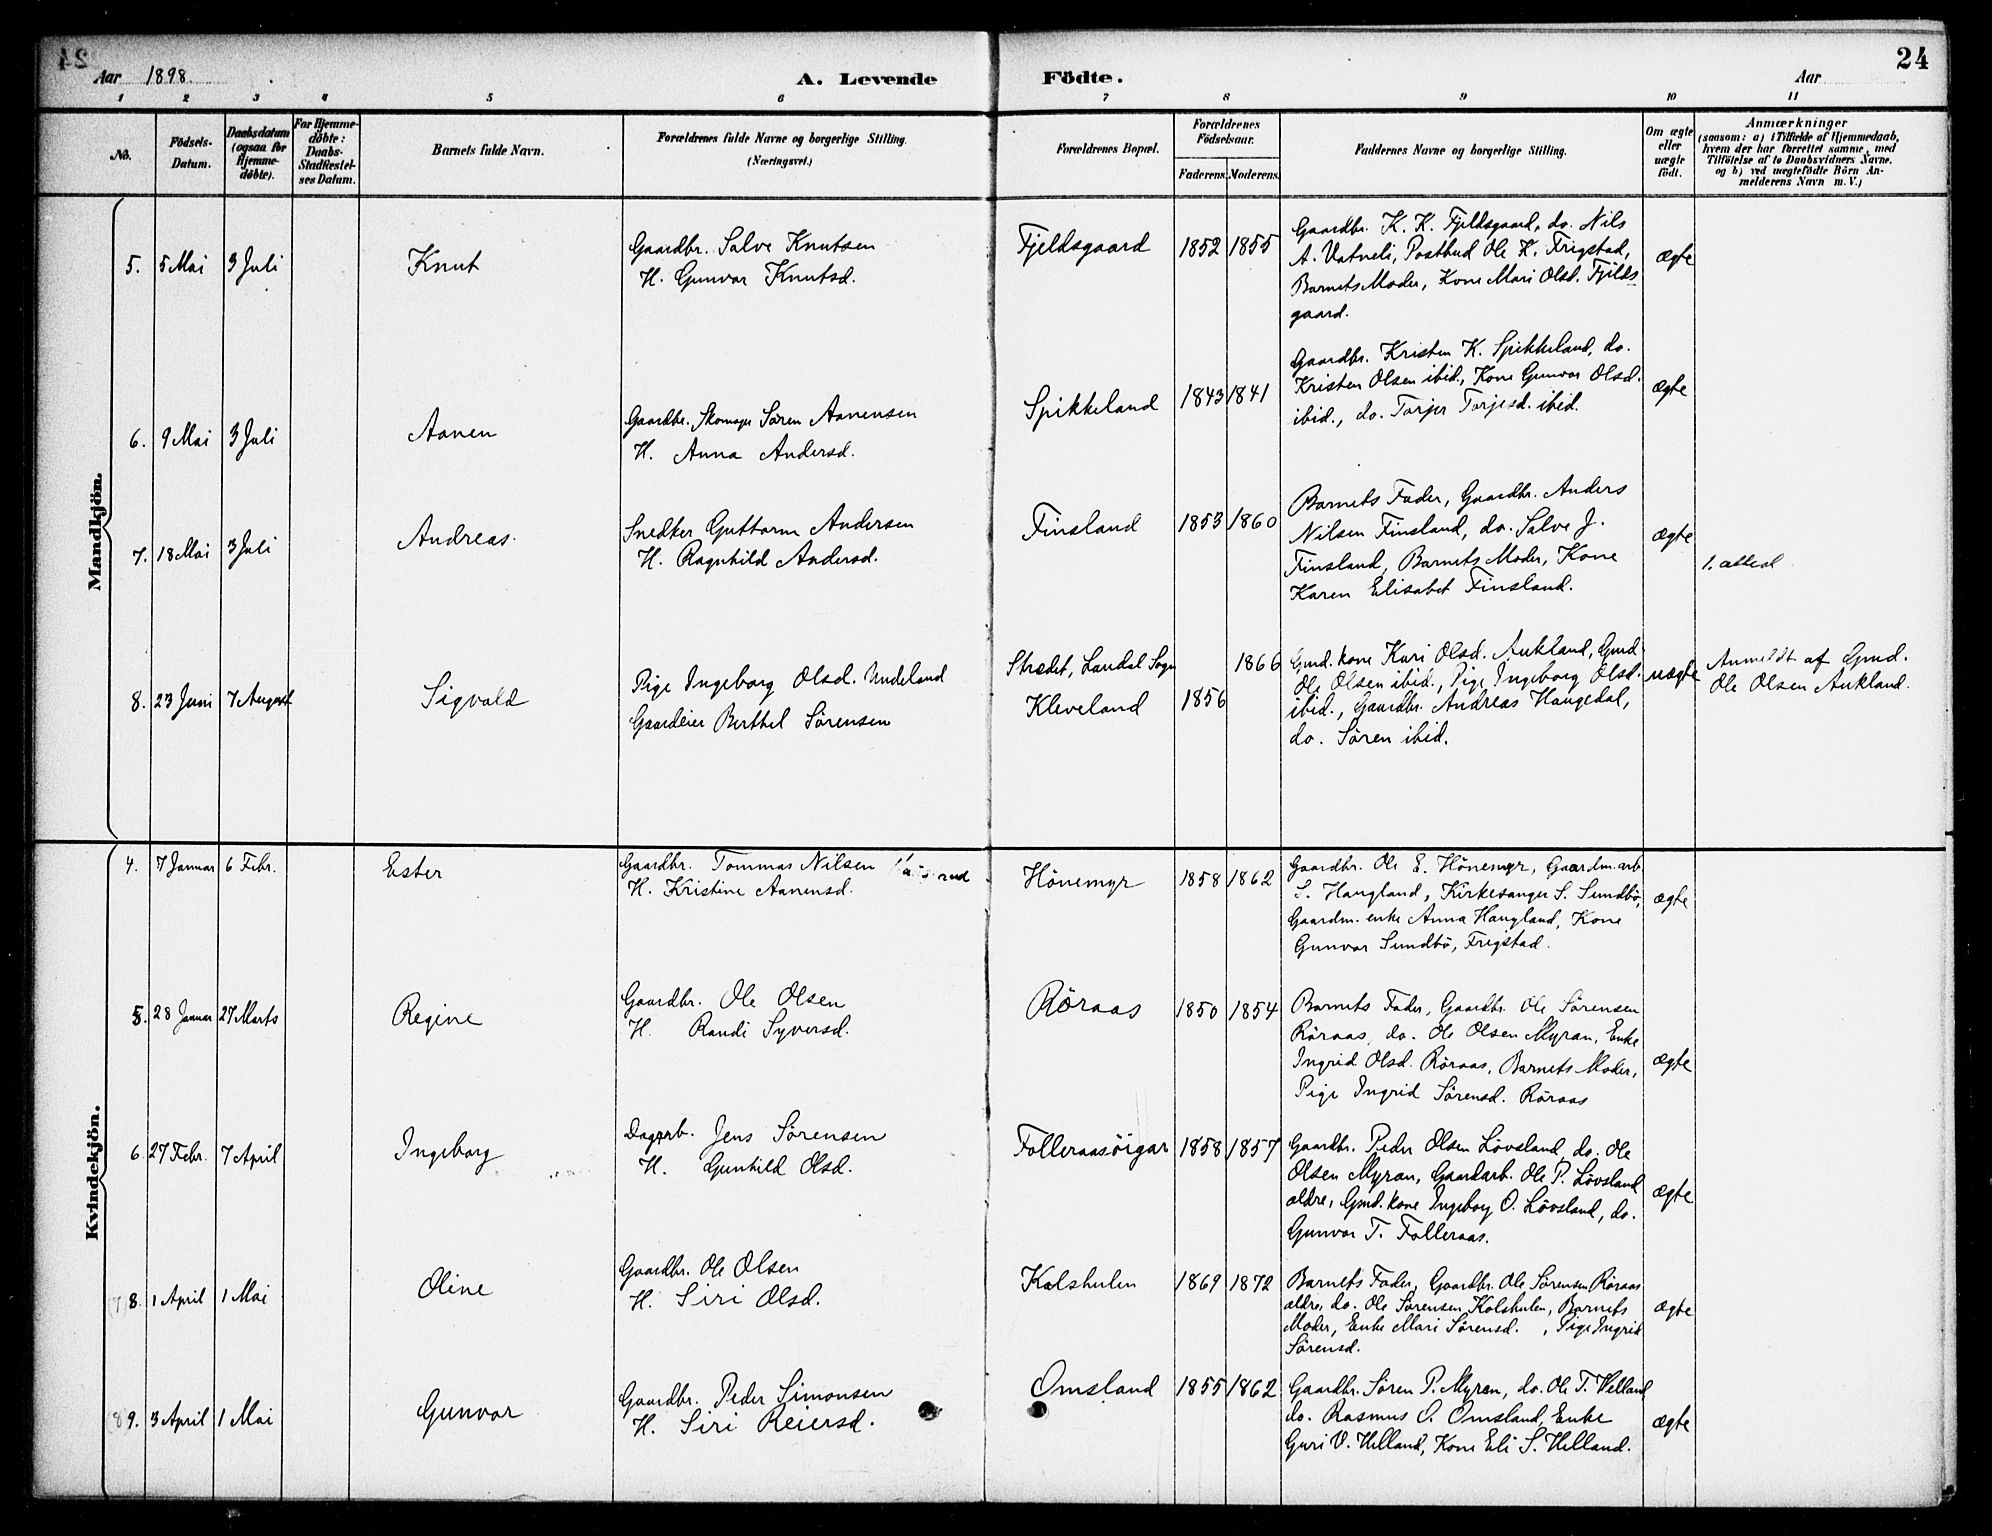 24
Aar 1898. A. Levende Födte. Aar
1 2 3 4 5 6 7 8 9 10 11
No. Födsels-Datum. Daabsdatum (ogsaa for Hjemme-döbte). For Hjemme-döbte: Daabs-Stadfæstel-ses Datum. Barnets fulde Navn. Forældrenes fulde Navne og borgerlige Stilling. (Næringsvei.) Forældrenes Bopæl. Forældrenes Födselsaar. Faderens. Moderens. Faddernes Navne og borgerlige Stilling. Om ægte eller uægte födt. Anmærkninger (saasom: a) i Tilfælde af Hjemmedaab, hvem der har forrettet samme, med Tilföielse af to Daabsvidners Navne, og b) ved uægtefödte Börn An-melderens Navn m. V.)
Mandkjön.
5. 5 Mai 3 Juli Knut Gaardbr. Salve Knutsen
H. Gunvor Knutsd.
Fjeldsgaard 1852 1855
Gaardbr. K. K. Fjeldsgaard, do. Nils
A. Vatneli, Postbud Ole K. Frigstad,
Barnets Moder, Kone Mari Olsd. Fjelds
gaard.
ægte
6. 9 Mai 3 Juli Aanen Gaardbr. Skomager Sören Aanensen
H. Anna Andersd.
Spikkeland 1843 1841
Gaardbr. Kristen K. Spikkeland, do.
Kristen Olsen ibid., Kone Gunvor Olsd.
ibid., do. Torjer Torjesd. ibid.
ægte
7. 18 Mai 3 Juli Andreas. Snedker Guttorm Andersen
H. Ragnhild Andersd.
Finsland 1853 1860
Barnets Fader, Gaardbr. Anders
Nilsen Finsland, do. Salve J.
Finsland, Barnets Moder, Kone
Karen Elisabet Finsland.
ægte
1. attest
8. 23 Juni 7 August Sigvald Pige Ingeborg Olsd. Undeland
Gaardeier Berthel Sörensen
Strædet, Laudal Sogn 1866
Kleveland 1856
Gmd. kone Kari Olsd. Aukland, Gmd
Ole Olsen ibid., Pige Ingeborg Olsd.
ibid., Gaardbr. Andreas Haugedal,
do. Sören ibid.
uægte
Anmeldt af Gmd.
Ole Olsen Aukland.
Kvindekjön.
4. 7 Januar 6 Febr. Ester Gaardbr. Tommas Nilsen
H. Kristine Aanensd.
Hönemyr 1858 1862
Gaardbr. Ole E. Hönemyr, Gaardm. arb.
S. Haugland, Kirkesanger S. Sundbö,
Gaardm. enke Anna Haugland, Kone
Gunvor Sundbö, Frigstad.
ægte
5. 28 Januar 27 Marts Regine Gaardbr. Ole Olsen
H. Randi Syversd.
Röraas 1850 1854
Barnets Fader, Gaardbr. Ole Sörensen
Röraas, do. Ole Olsen Myran, Enke
Ingrid Olsd. Röraas, Barnets Moder,
Pige Ingrid Sörensd. Röraas
ægte
6. 27 Febr. 7 April Ingeborg Dagarb. Jens Sörensen
H. Gunhild Olsd.
Folleraasöigar 1858 1857
Gaardbr. Peder Olsen Lövsland, do. Ole
Olsen Myran, Gaardarb. Ole P. Lövsland
ældre, Gmd. kone Ingeborg O. Lövsland, do.
Gunvor T. Folleraas.
ægte
8. 1 April 1 Mai Oline Gaardbr. Ole Olsen
H. Siri Olsd.
Kolshulen 1869 1872
Barnets Fader, Gaardbr. Ole Sörensen Röraas
ældre, do. Ole Sörensen Kolshulen, Barnets
Moder, Enke Mari Sörensd. , Pige Ingrid
Sörensd.
ægte
9. 3 April 1 Mai Gunvor Gaardbr. Peder Simonsen
H. Siri Reiersd.
Omsland 1855 1862
Gaardbr. Sören P. Myran, do. Ole T. Helland
do. Rasmus O. Omsland, Enke
Guri V. Helland, Kone Eli S. Helland.
ægte